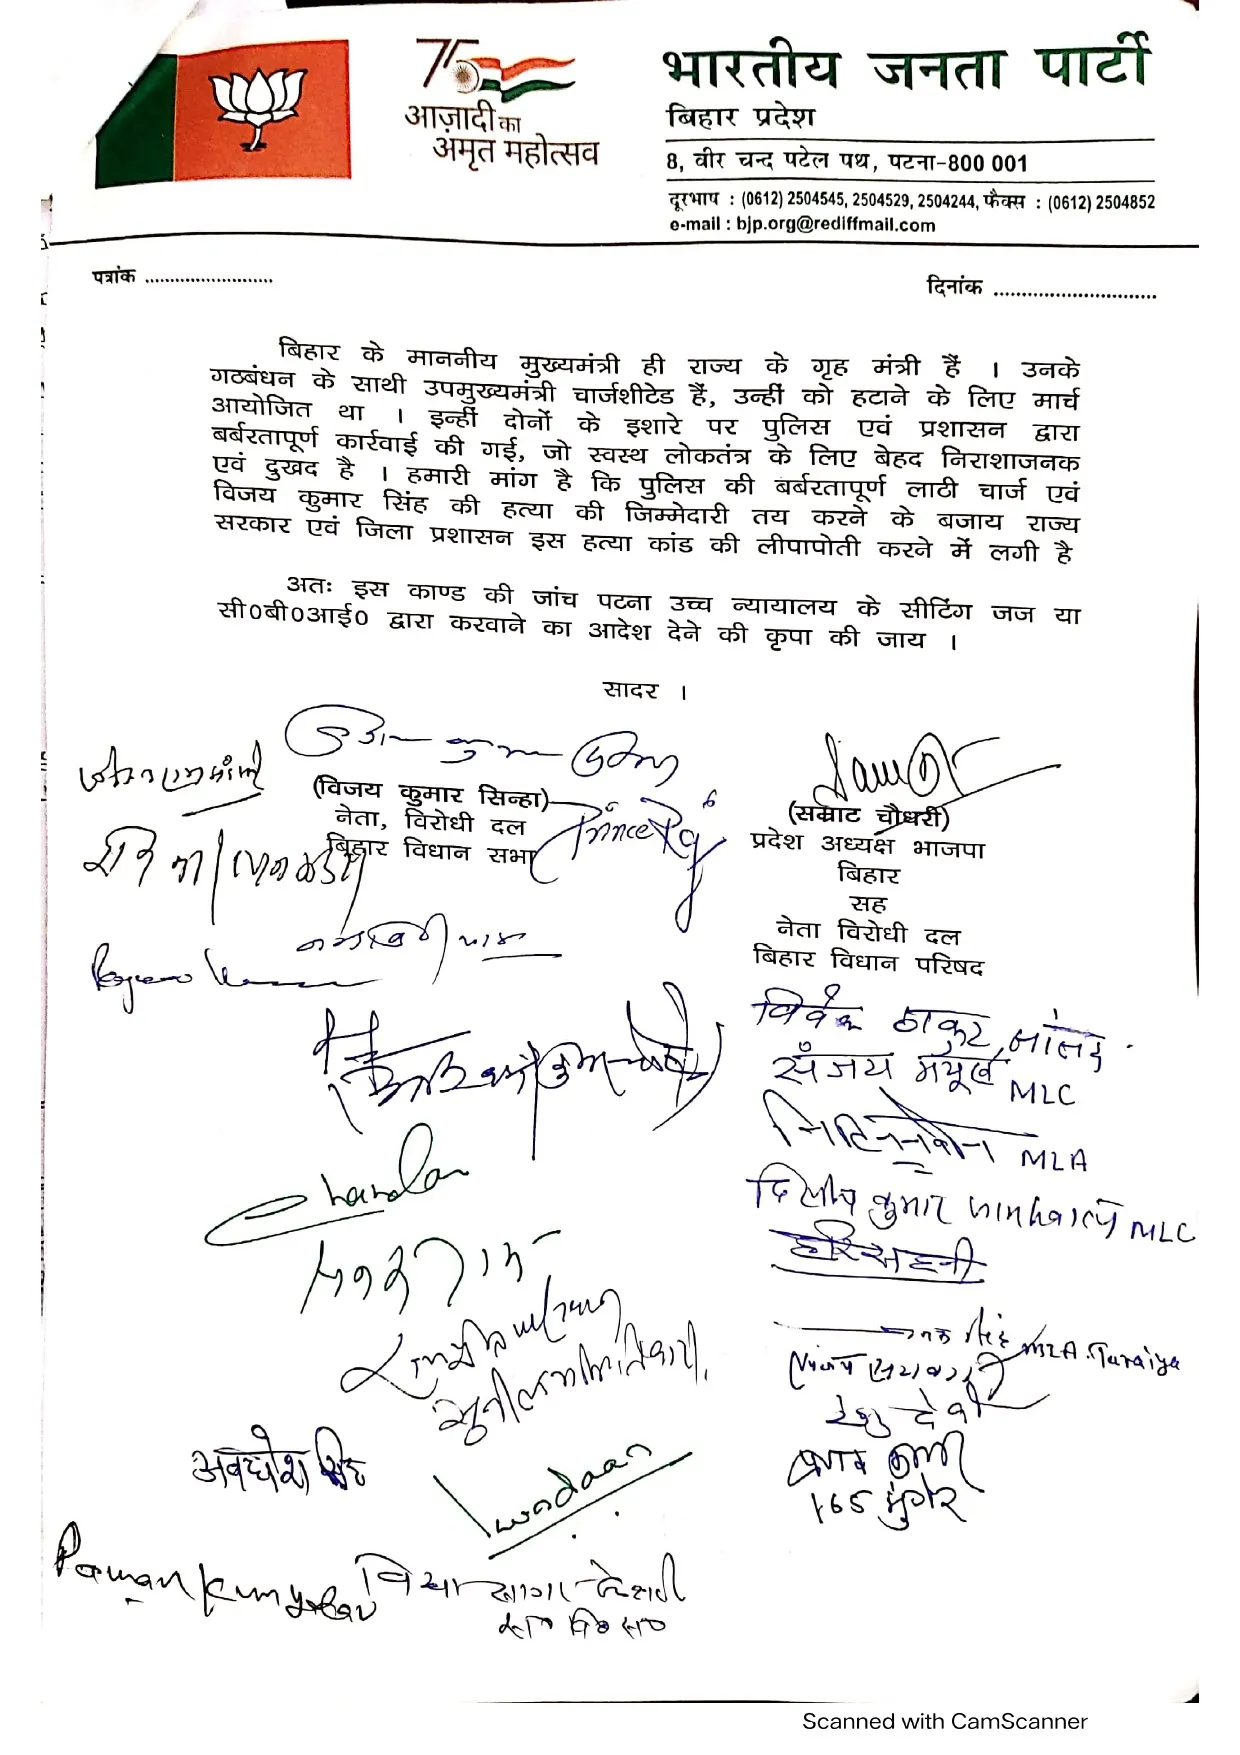 75
आज़ादी का
अमृत महोत्सव
भारतीय जनता पार्टी
बिहार प्रदेश
8, वीर चन्द पटेल पथ, पटना-800 001
दूरभाष : (0612) 2504545, 2504529, 2504244, फैक्स : (0612) 2504852
e-mail : bjp.org@rediffmail.com
पत्रांक ..........................
दिनांक .............................
बिहार के माननीय मुख्यमंत्री ही राज्य के गृह मंत्री हैं । उनके
गठबंधन के साथी उपमुख्यमंत्री चार्जशीटेड हैं, उन्हीं को हटाने के लिए मार्च
आयोजित था । इन्हीं दोनों के इशारे पर पुलिस एवं प्रशासन द्वारा
बर्बरतापूर्ण कार्रवाई की गई, जो स्वस्थ लोकतंत्र के लिए बेहद निराशाजनक
एवं दुखद है । हमारी मांग है कि पुलिस की बर्बरतापूर्ण लाठी चार्ज एवं
विजय कुमार सिंह की हत्या की जिम्मेदारी तय करने के बजाय राज्य
सरकार एवं जिला प्रशासन इस हत्या कांड की लीपापोती करने में लगी है
अतः इस काण्ड की जांच पटना उच्च न्यायालय के सीटिंग जज या
सी0बी0आई0 द्वारा करवाने का आदेश देने की कृपा की जाय ।
सादर ।
(विजय कुमार सिन्हा)
नेता, विरोधी दल
बिहार विधान सभा
Prince Raj
(सम्राट चौधरी)
प्रदेश अध्यक्ष भाजपा
बिहार
सह
नेता विरोधी दल
बिहार विधान परिषद
विवेक ठाकुर, सांसद
संजय मयूख MLC
MLA
दिलीप कुमार जायसवाल MLC
हरि सहनी
Chandan
MLA Taraiya
रेणु देवी
अवधेश सिंह
165 मुंगेर
Pawan Kum Yadav
Scanned with CamScanner